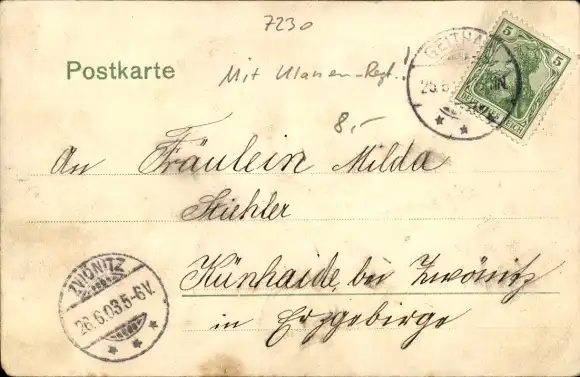 7230
Postkarte
Mit Ulanen-Regt.!
8,-
GEITHA
25.6
5 5
REICH
An Fräulein Milda
Stiehler
Künhaide, bei Zwönitz
in Erzgebirge
ZWÖNITZ
26.6.03.5-6V.